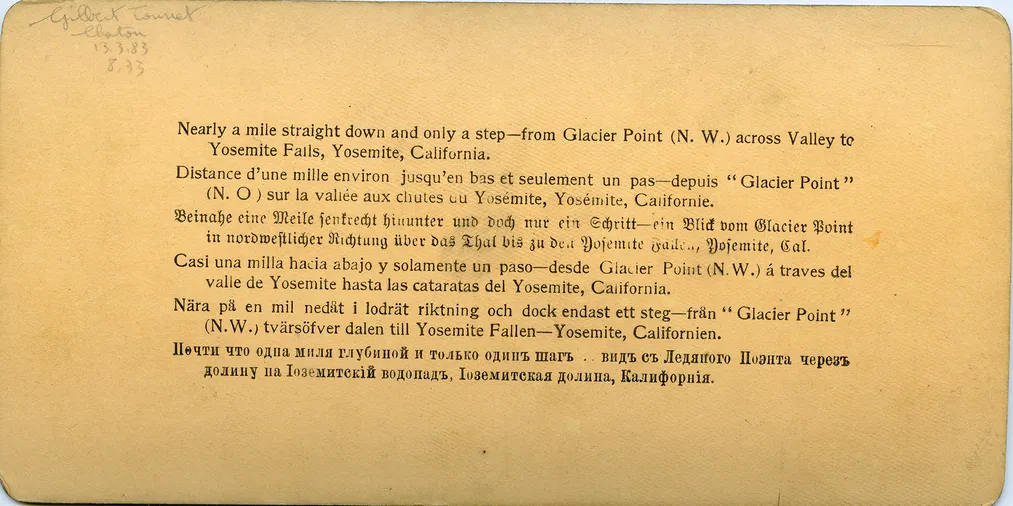 Gilbert
13.3.83
8.33
Nearly a mile straight down and only a step—from Glacier Point (N. W.) across Valley to
Yosemite Falls, Yosemite, California.
Distance d'une mille environ jusqu'en bas et seulement un pas—depuis “ Glacier Point ”
(N. O ) sur la vallée aux chutes du Yosémite, Yosémite, Californie.
Beinahe eine Meile senkrecht hinunter und doch nur ein Schritt—ein Blick vom Glacier Point
in nordwestlicher Richtung über das Thal bis zu den Yosemite Fällen, Yosemite, Cal.
Casi una milla hacia abajo y solamente un paso—desde Glacier Point (N.W.) á traves del
valle de Yosemite hasta las cataratas del Yosemite, California.
Nära på en mil nedåt i lodrät riktning och dock endast ett steg—från “ Glacier Point ”
(N.W.) tvärsöfver dalen till Yosemite Fallen—Yosemite, Californien.
Почти что одна миля глубиной и только одинъ шагъ .. видъ съ Ледяного Поэнта черезъ
долину на Іоземитскій водопадъ, Іоземитская долина, Калифорнія.